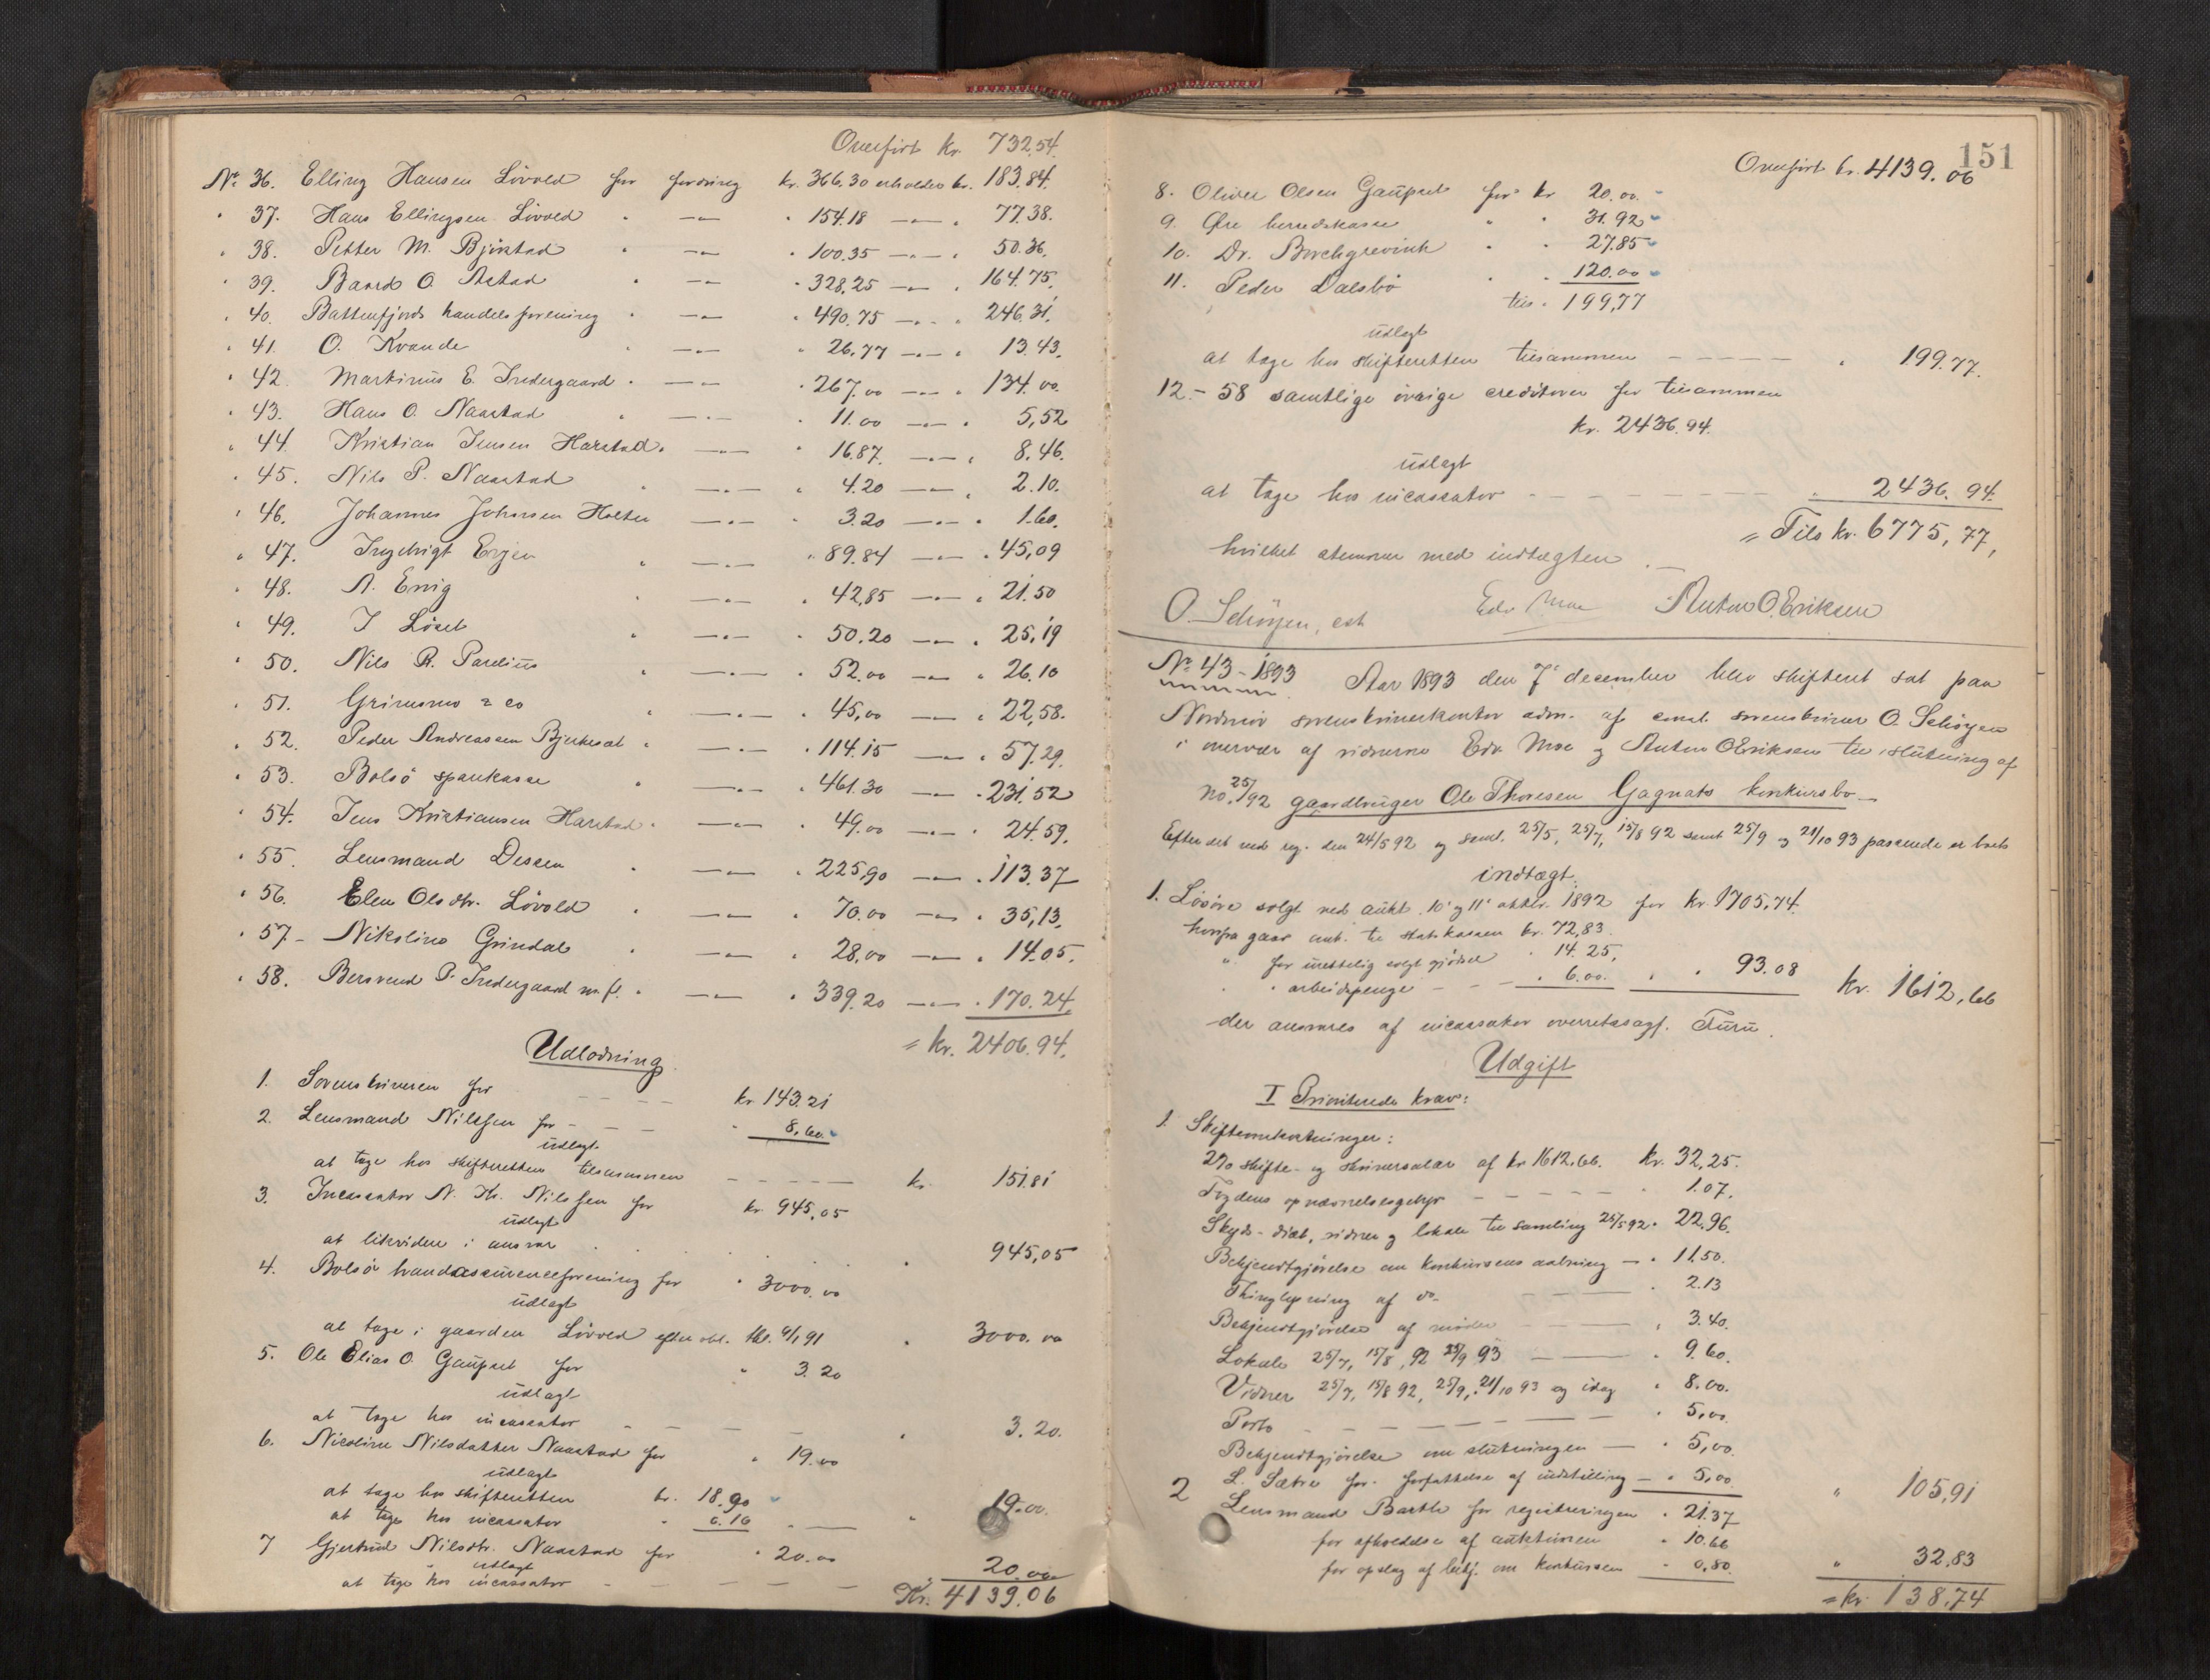 Overført kr. 732.54.
No. 36. Elling Hansen Lövold for fordring kr. 366.30 erholder kr. 183.84.
" 37. Hans Ellingsen Lövold " —"— " 154.18 —"— " 77.38.
" 38. Petter M. Bjørstad " —"— " 100.35 —"— " 50.36.
" 39. Baard O. Aastad " —"— " 328.25 —"— " 164.75.
" 40. Battenfjords handelsforening " —"— " 490.75 —"— " 246.31.
" 41. O. Kvande " —"— " 26.77 —"— " 13.43.
" 42. Martinus E. Indergaard " —"— " 267.00 —"— " 134.00.
" 43. Hans O. Naastad " —"— " 11.00 —"— " 5,52
" 44. Kristian Jensen Harstad " —"— " 16.87. —"— " 8.46.
" 45. Nils P. Naastad " —"— " 4.20 —"— " 2.10.
" 46. Johannes Johnsen Holten —"— " 3.20 —"— " 1.60.
" 47. Ingebrigt " —"— " 89.84 —"— " 45,09
" 48. A. " —"— " 42,85 —"— " 21.50
" 49. J Löset " —"— " 50.20 —"— " 25,19
" 50. Nils R. Parelius " —"— " 52.00 —"— " 26.10
" 51. Grimsmo & co " —"— " 45,00 —"— " 22,58.
" 52. Peder Andreassen Bjerkeset " —"— " 114.15 —"— " 57.29.
" 53. Bolsö sparekasse " —"— " 461.30 —"— " 231.52
" 54. Jens Kristiansen Harstad " —"— " 49.00 —"— " 24.59.
" 55. Lensmand Dessen " —"— " 225,90 —"— " 113.37
" 56. Elen Olsdtr. Lövold " —"— " 70.00 —"— " 35,13.
" 57. Nikoline Grindal " —"— " 28,00 —"— " 14.05.
" 58. Bersvend P. Indergaard m. fl. " —"— " 339.20 —"— " 170.24.
= kr. 2406.94.
Udlodning.
1. Sorenskriveren for – – – – kr 143.21
2. Lensmand Nilssen for – – – " 8,60.
udlagt
at tage hos skifteretten tilsammen – – – – – kr. 151.81
3. Incassator N. Kr. Nilssen for kr. 945,05
udlagt
at likvidere i ansvar " 945,05
4. Bolsö brandassuranceforening for " 3000.00
udlagt
at tage i gaarden Lövold efter obl. thl. 6/1 91 " 3000.00
5. Ole Elias O. Gaupset for " 3.20
udlagt
at tage hos incassator – – – – " 3.20.
6. Nicoline Nilsdatter Naastad for " 19.00
udlagt
at tage hos skifteretten kr. 18.90
at tage hos incassator " 0.10 " — " 19.00.
7 Gjertrud Nilsdtr. Naastad for " 20.00
udlagt
at tage hos incassator – – – – " 20.00
Kr. 4139.06
151
Overført kr. 4139.06
8. Oliver Olsen Gaupset for kr 20.00.
9. Øre herredskasse " " 31.92
10. Dr. Borchgrevink " " 27.85
11. Peder Dalsbö " " 120.00
tils. " 199,77
udlagt
at tage hos skifteretten tilsammen – – – – – " 199.77.
12.–58 samtlige övrige creditorer for tilsammen
kr. 2436.94.
udlagt
at tage hos incassator – – – – – – – " 2436.94.
= Tils kr. 6775,77,
hvilket stemmer med indtægten.
O. Schöyen, cst Edv Moe Anton O. Eriksen
No. 43–1893 Aar 1893 den 7' december blev skifteret sat paa
Nordmör sorenskriverkontor adm. af const. sorenskriver O. Schöyen
i overvær af vidnerne Edv. Moe og Anton O Eriksen til slutning af
No. 25/92 gaardbruger Ole Thoresen Gagnats konkursbo —
Efter det ved reg. den 24/5 92 og saml. 25/5, 25/7, 15/8 92 samt 25/9 og 21/10 93 passerede er boets
indtægt.
1. Lösöre solgt ved aukt. 10' og 11' oktbr. 1892 for kr. 1705,74.
herfra gaar auk. til statskassen kr. 72,83.
" for urettelig solgt gjödsel " 14.25,
" " arbeidspenge – – – " 6.00. " " 93.08 kr. 1612,66
der ansvares af incassator overretssagf. Furu.
Udgift
I Prioriterede krav:
1. Skifteomkostninger:
2% skifte- og skriversalær af kr 1612.66. kr. 32,25.
Fogdens opnævnelsesgebyr – – – – – " 1.07.
Skyds- diæt, vidner og lokale til samling 25/5 92 " 22.96.
Bekjendtgjörelse om konkursens aabning — " 11.50.
Thinglysning af do – — " 2.13
Bekjendtgjörelse af möder — " 3.40.
Lokale 25/7, 15/8, 92 25/9 93 — " 9.60.
Vidner 25/7, 15/8 92, 25/9, 21/10 93 og idag " 8.00.
Porto – – – – – – – " 5,00.
Bekjendtgjörelse om slutningen — " 5,00.
L. Sætre for forfattelse af indstilling — " 5,00. " 105,91
2 Lensmand Barth for registreringen " 21.37
for afholdelse af auktionen " 10.66
for opslag af bekj. om konkursen " 0,80. " 32,83
= kr. 138,74